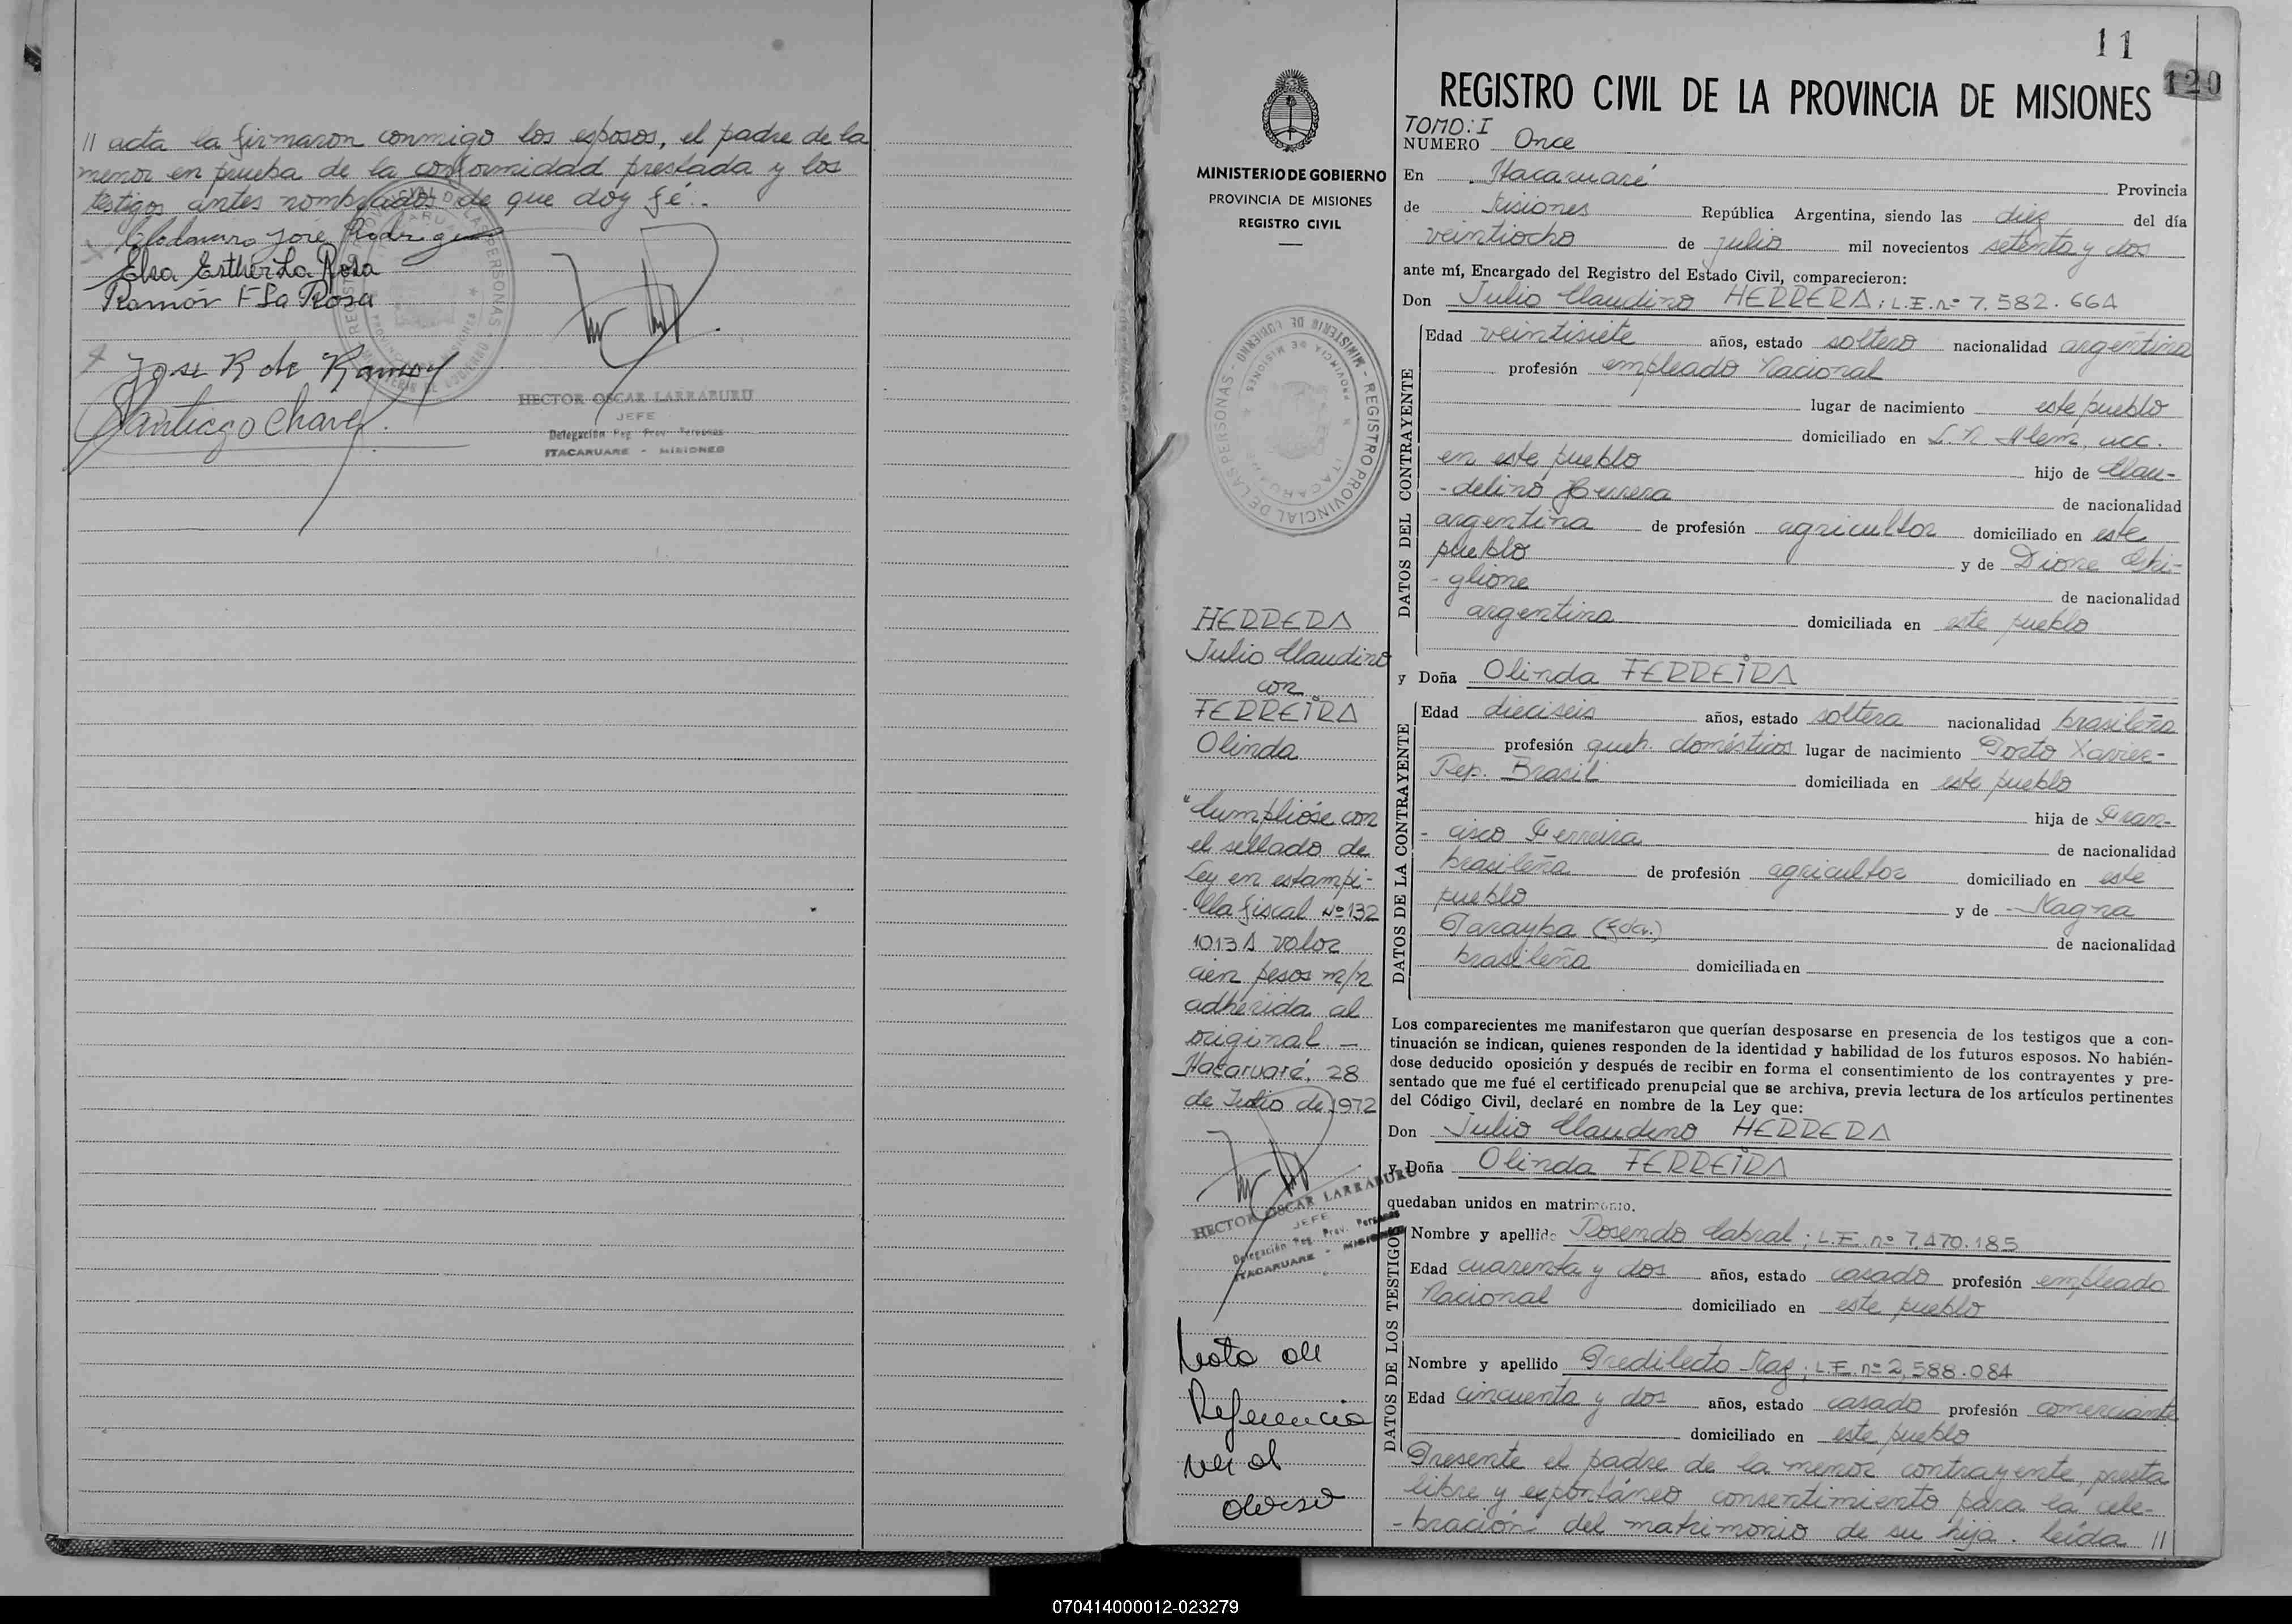 // acta la firmaron conmigo los esposos, el padre de la
menor en prueba de la conformidad prestada y los
testigos antes nombrados de que doy fé.-
Clodomiro José Rodrigues
Elsa Esther La Rosa
Ramón F La Rosa
Jose R de Ramoy
Santiago Chavez.
HECTOR OSCAR LARRABURU
JEFE
Delegación Reg. Prov. Personas
ITACARUARE - MISIONES
11
120
REGISTRO CIVIL DE LA PROVINCIA DE MISIONES
MINISTERIO DE GOBIERNO
PROVINCIA DE MISIONES
REGISTRO CIVIL
REGISTRO PROVINCIAL DE LAS PERSONAS - MINISTERIO DE GOBIERNO -
PROVINCIA DE MISIONES * ITACARUARE *
HERRERA
Julio Claudino
con
FERREIRA
Olinda
"Cumplióse con
el sellado de
Ley en estampi-
-lla fiscal Nº 132
1013 A valor
cien pesos m/n
adherida al
original.-
Itacaruaré, 28
de Julio de 1972
HECTOR OSCAR LARRABURU
JEFE
Delegación Reg. Prov. Personas
ITACARUARE - MISIONES
Nota de
Referencia
ver al
dorso
TOMO: I
NUMERO Once
En Itacaruaré Provincia
de Misiones República Argentina, siendo las diez del día
veintiocho de julio mil novecientos setenta y dos
ante mí, Encargado del Registro del Estado Civil, comparecieron:
Don Julio Claudino HERRERA; L.E. nº 7.582.664
DATOS DEL CONTRAYENTE
Edad veintisiete años, estado soltero nacionalidad argentina
profesión empleado Nacional
lugar de nacimiento este pueblo
domiciliado en L.N. Alem, acc.
en este pueblo hijo de Clau-
-delino Herrera de nacionalidad
argentina de profesión agricultor domiciliado en este
pueblo y de Dione
-glione de nacionalidad
argentina domiciliada en este pueblo
y Doña Olinda FERREIRA
DATOS DE LA CONTRAYENTE
Edad dieciseis años, estado soltera nacionalidad brasileña
profesión queh. domésticos lugar de nacimiento Porto Xavier-
Rep. Brasil domiciliada en este pueblo
hija de Fran-
-cisco Ferreira de nacionalidad
brasileña de profesión agricultor domiciliado en este
pueblo y de Magna
Parayba (fdca.) de nacionalidad
brasileña domiciliada en
Los comparecientes me manifestaron que querían desposarse en presencia de los testigos que a con-
tinuación se indican, quienes responden de la identidad y habilidad de los futuros esposos. No habién-
dose deducido oposición y después de recibir en forma el consentimiento de los contrayentes y pre-
sentado que me fué el certificado prenupcial que se archiva, previa lectura de los artículos pertinentes
del Código Civil, declaré en nombre de la Ley que:
Don Julio Claudino HERRERA
y Doña Olinda FERREIRA
quedaban unidos en matrimonio.
DATOS DE LOS TESTIGOS
Nombre y apellido Rosendo Cabral; L.E. nº 7,470.185
Edad cuarenta y dos años, estado casado profesión empleado
Nacional domiciliado en este pueblo
Nombre y apellido Predilecto Raz; L.E. nº 2,588.084
Edad cincuenta y dos años, estado casado profesión comerciante
domiciliado en este pueblo
Presente el padre de la menor contrayente, presta
libre y espontáneo consentimiento para la cele-
-bración del matrimonio de su hija. Leída //
070414000012-023279